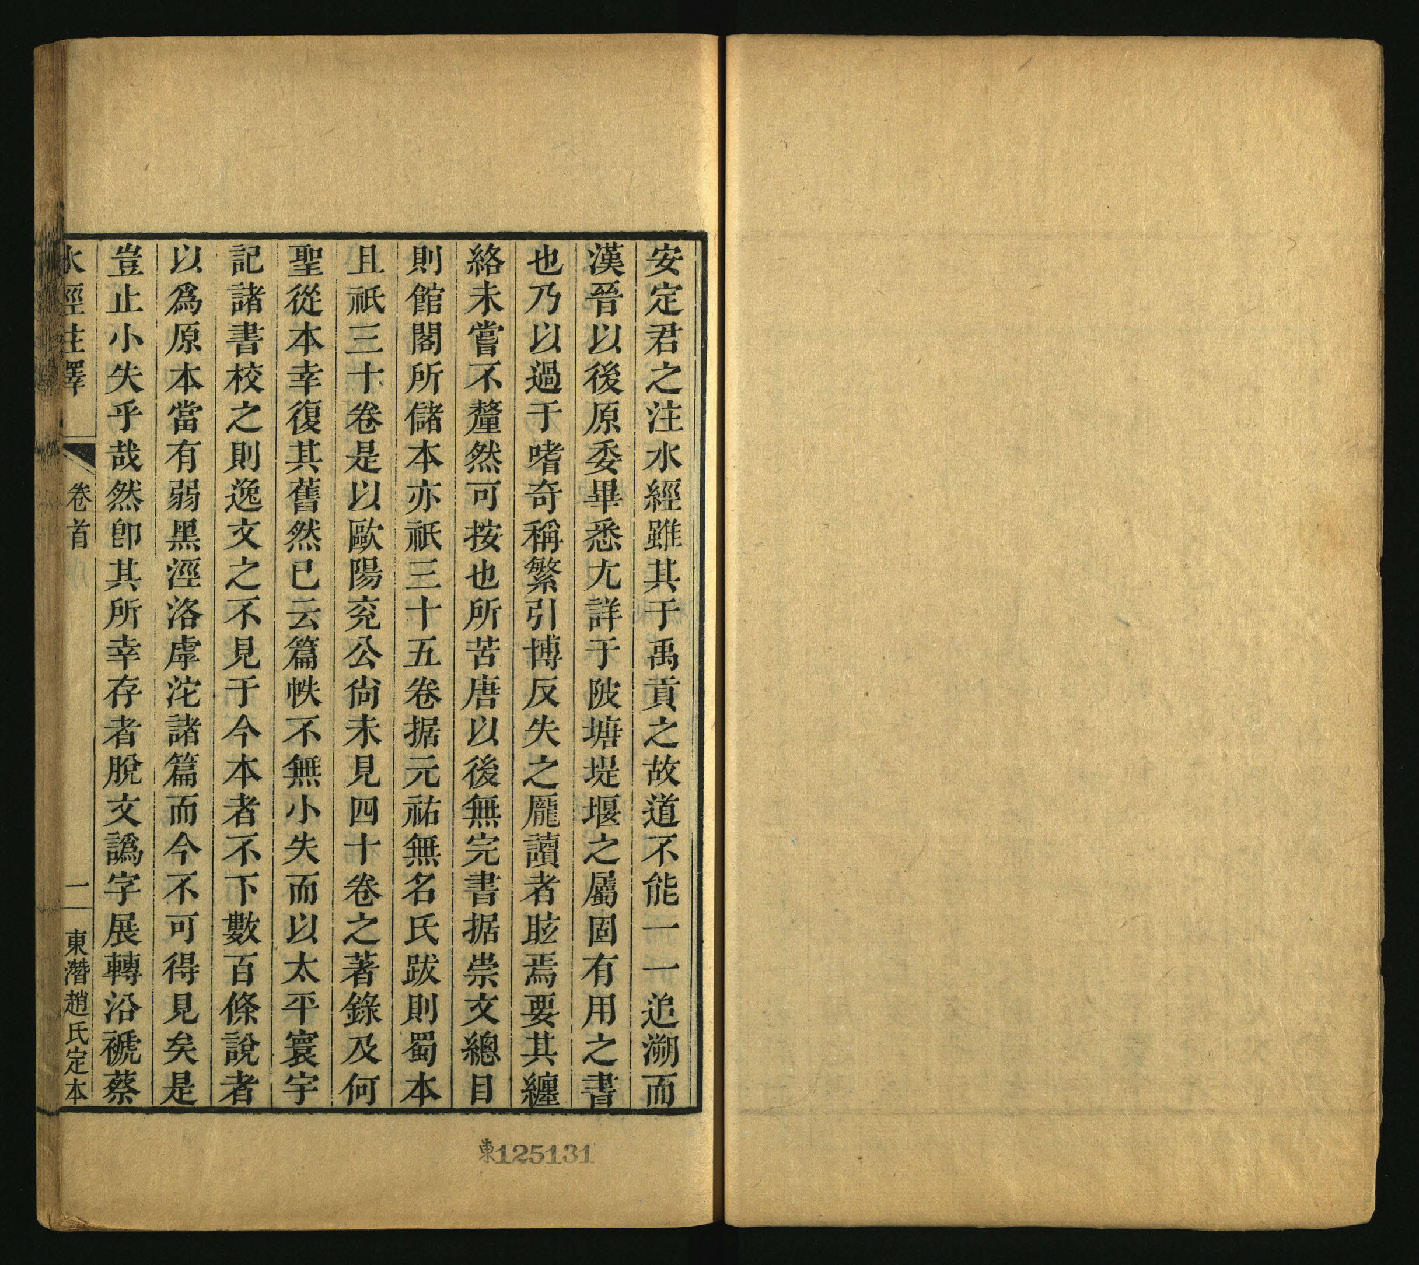 安定君之注水經雖其于禹貢之故道不能一一追溯而
漢晉以後原委畢悉尢詳于陂塘堤堰之屬固有用之書
也乃以過于嗜奇稱繁引博反失之龐讀者眩焉要其纏
絡未嘗不釐然可按也所苦唐以後無完書据崇文總目
則館閣所儲本亦祇三十五卷据元祐無名氏跋則蜀本
且祇三十卷是以歐陽兖公尙未見四十卷之著錄及何
聖從本幸復其舊然已云篇帙不無小失而以太平寰宇
記諸書校之則逸文之不見于今本者不下數百條說者
以爲原本當有弱黑涇洛虖沱諸篇而今不可得見矣是
豈止小失乎哉然卽其所幸存者脫文譌字展轉沿褫蔡
水經注釋 卷首 一 東潛趙氏定本
東125131